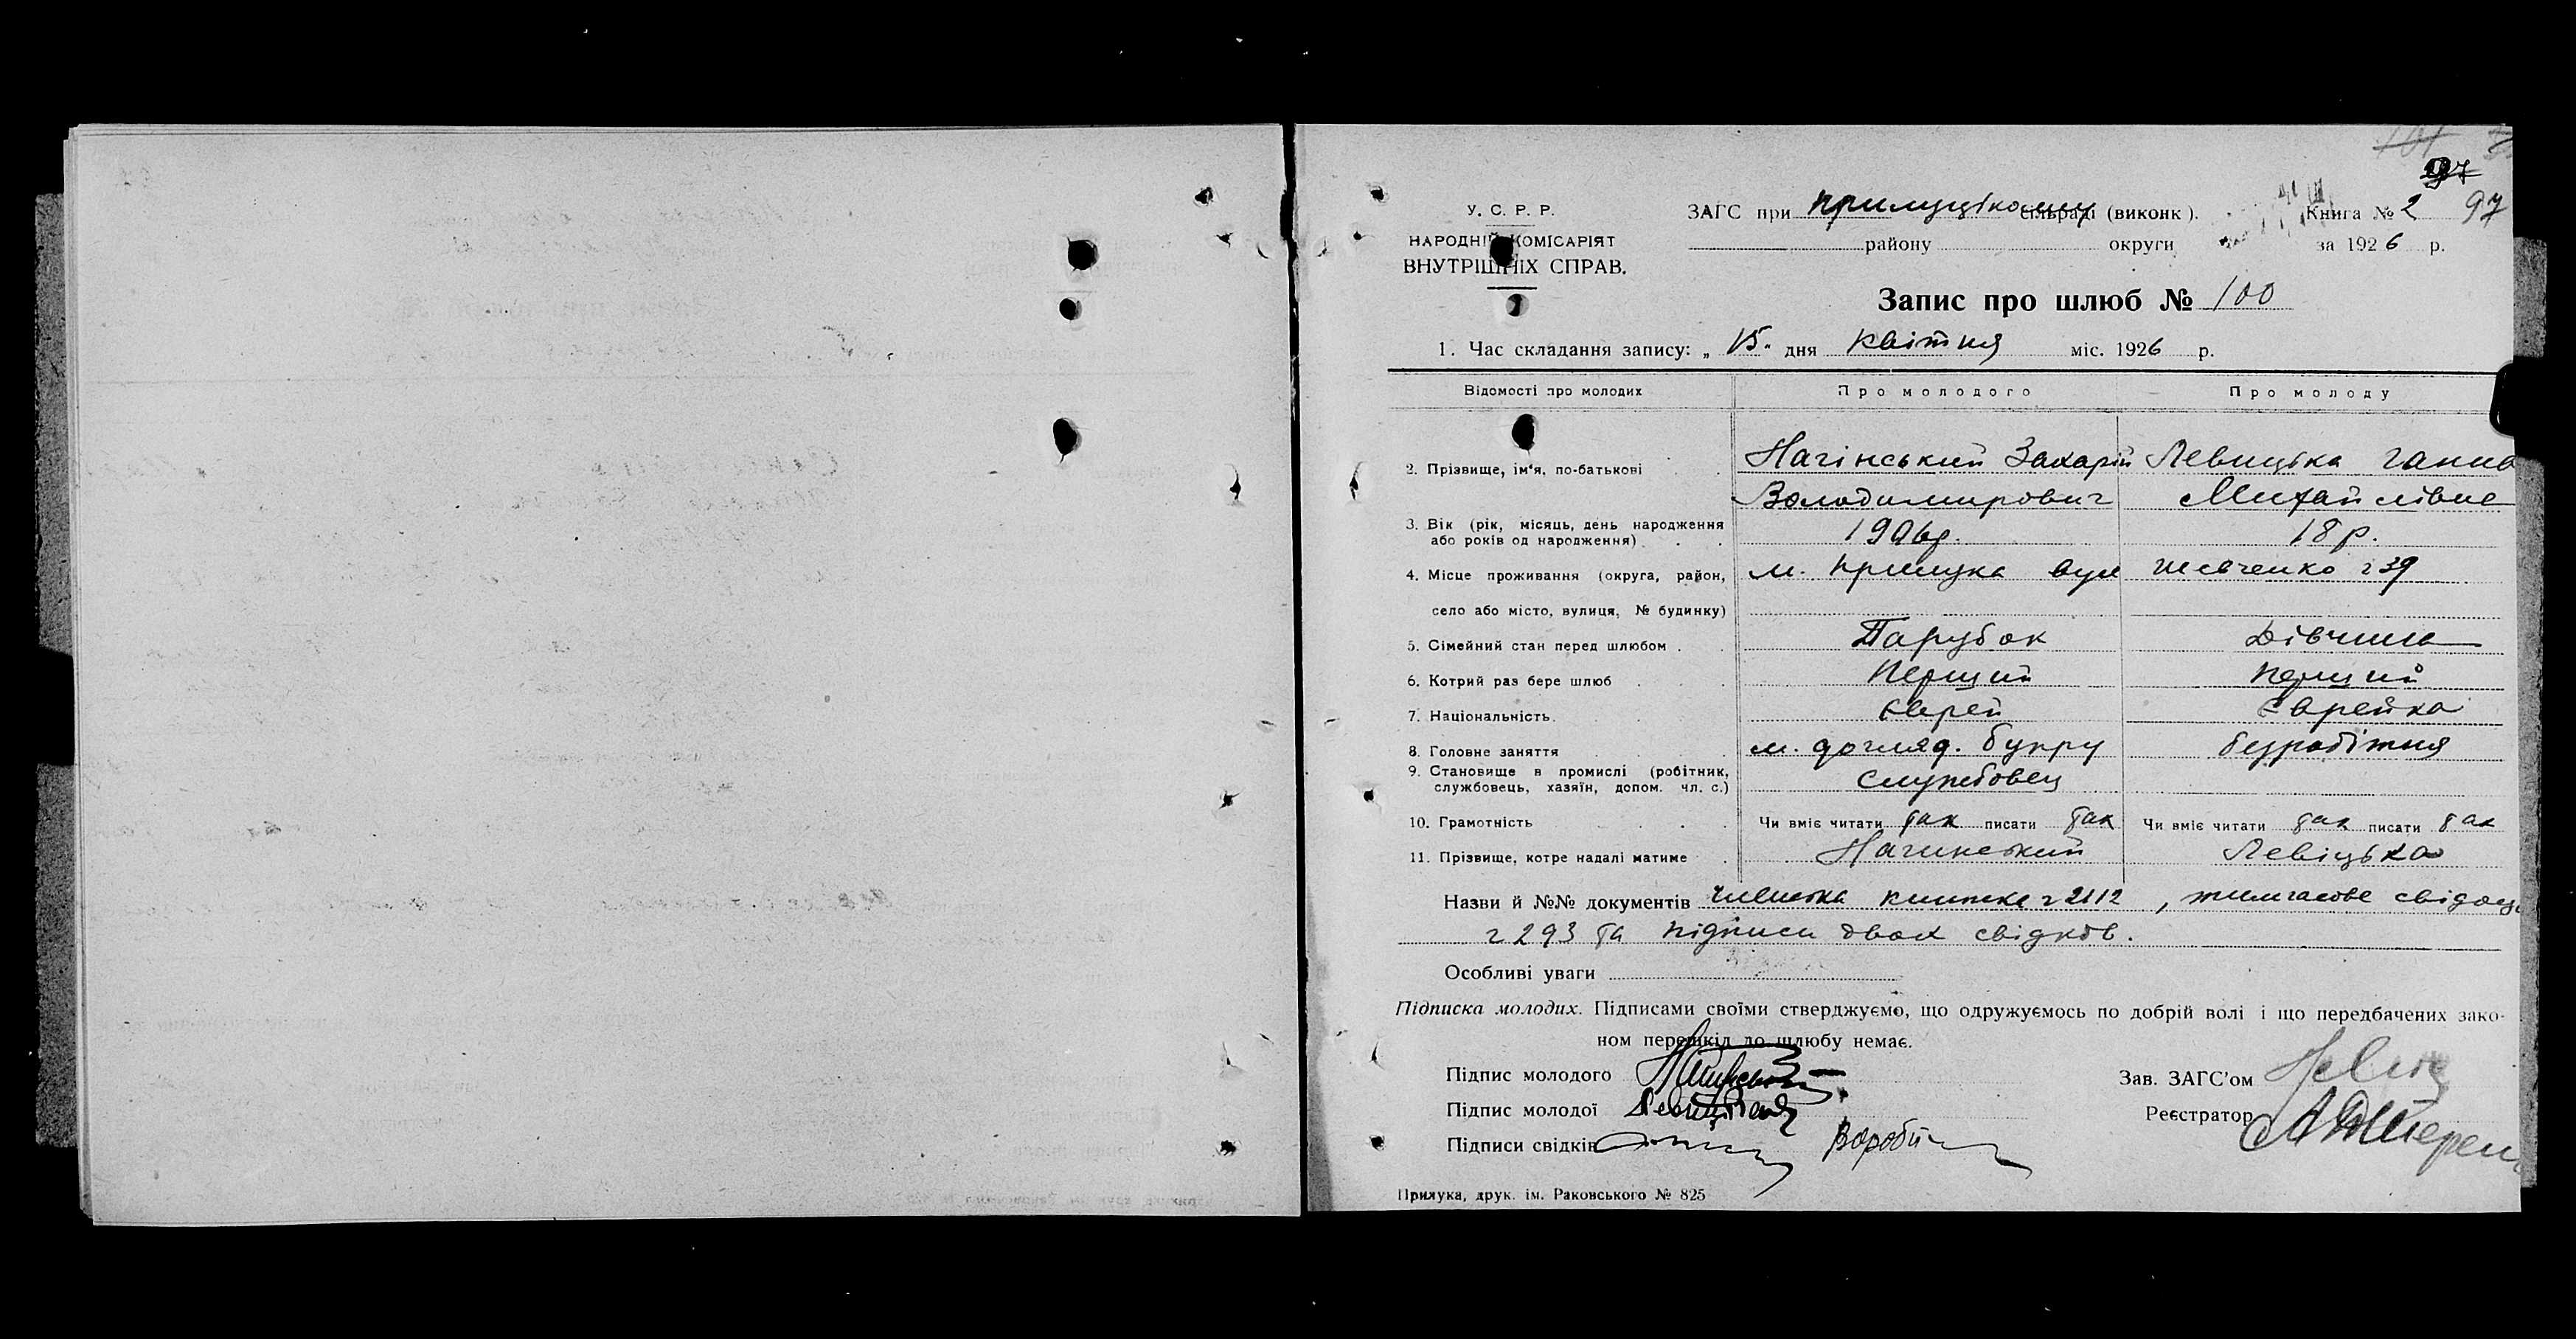 97
У. С. Р. Р.
НАРОДНІЙ КОМІСАРІЯТ
ВНУТРІШНІХ СПРАВ.
ЗАГС при Прилуцікому сільраді (виконк).
Книга № 2 97
району округи за 1926 р.
Запис про шлюб № 100
1. Час складання запису: „ 15 " дня квітня міс. 1926 р.
Відомості про молодих Про молодого Про молоду
2. Прізвище, ім'я, по-батькові Нагінський Захарій Левицька Ганна
Володимирович Михайлівна
3. Вік (рік, місяць, день народження
або років од народження) 1906р. 18 р.
4. Місце проживання (округа, район, м. Прилука вул Шевченко ч 39
село або місто, вулиця, № будинку)
5. Сімейний стан перед шлюбом Парубок Дівчина
6. Котрий раз бере шлюб Перший Перший
7. Національність Єврей Єврейка
8. Головне заняття м. догляд. бупру безробітня
9. Становище в промислі (робітник,
службовець, хазяїн, допом. чл. с.) службовец
10. Грамотність Чи вміє читати так писати так Чи вміє читати так писати так
11. Прізвище, котре надалі матиме Нагинський Левіцька
Назви й №№ документів книжка ч 2112, тимчасове свідоц
ч 293 та підписи двох свідків.
Особливі уваги
Підписка молодих. Підписами своїми стверджуємо, що одружуємось по добрій волі і що передбачених зако-
ном перешкід до шлюбу немає.
Підпис молодого
Зав. ЗАГС'ом
Підпис молодої
Реєстратор
Підписи свідків
Прилука, друк. ім. Раковського № 825